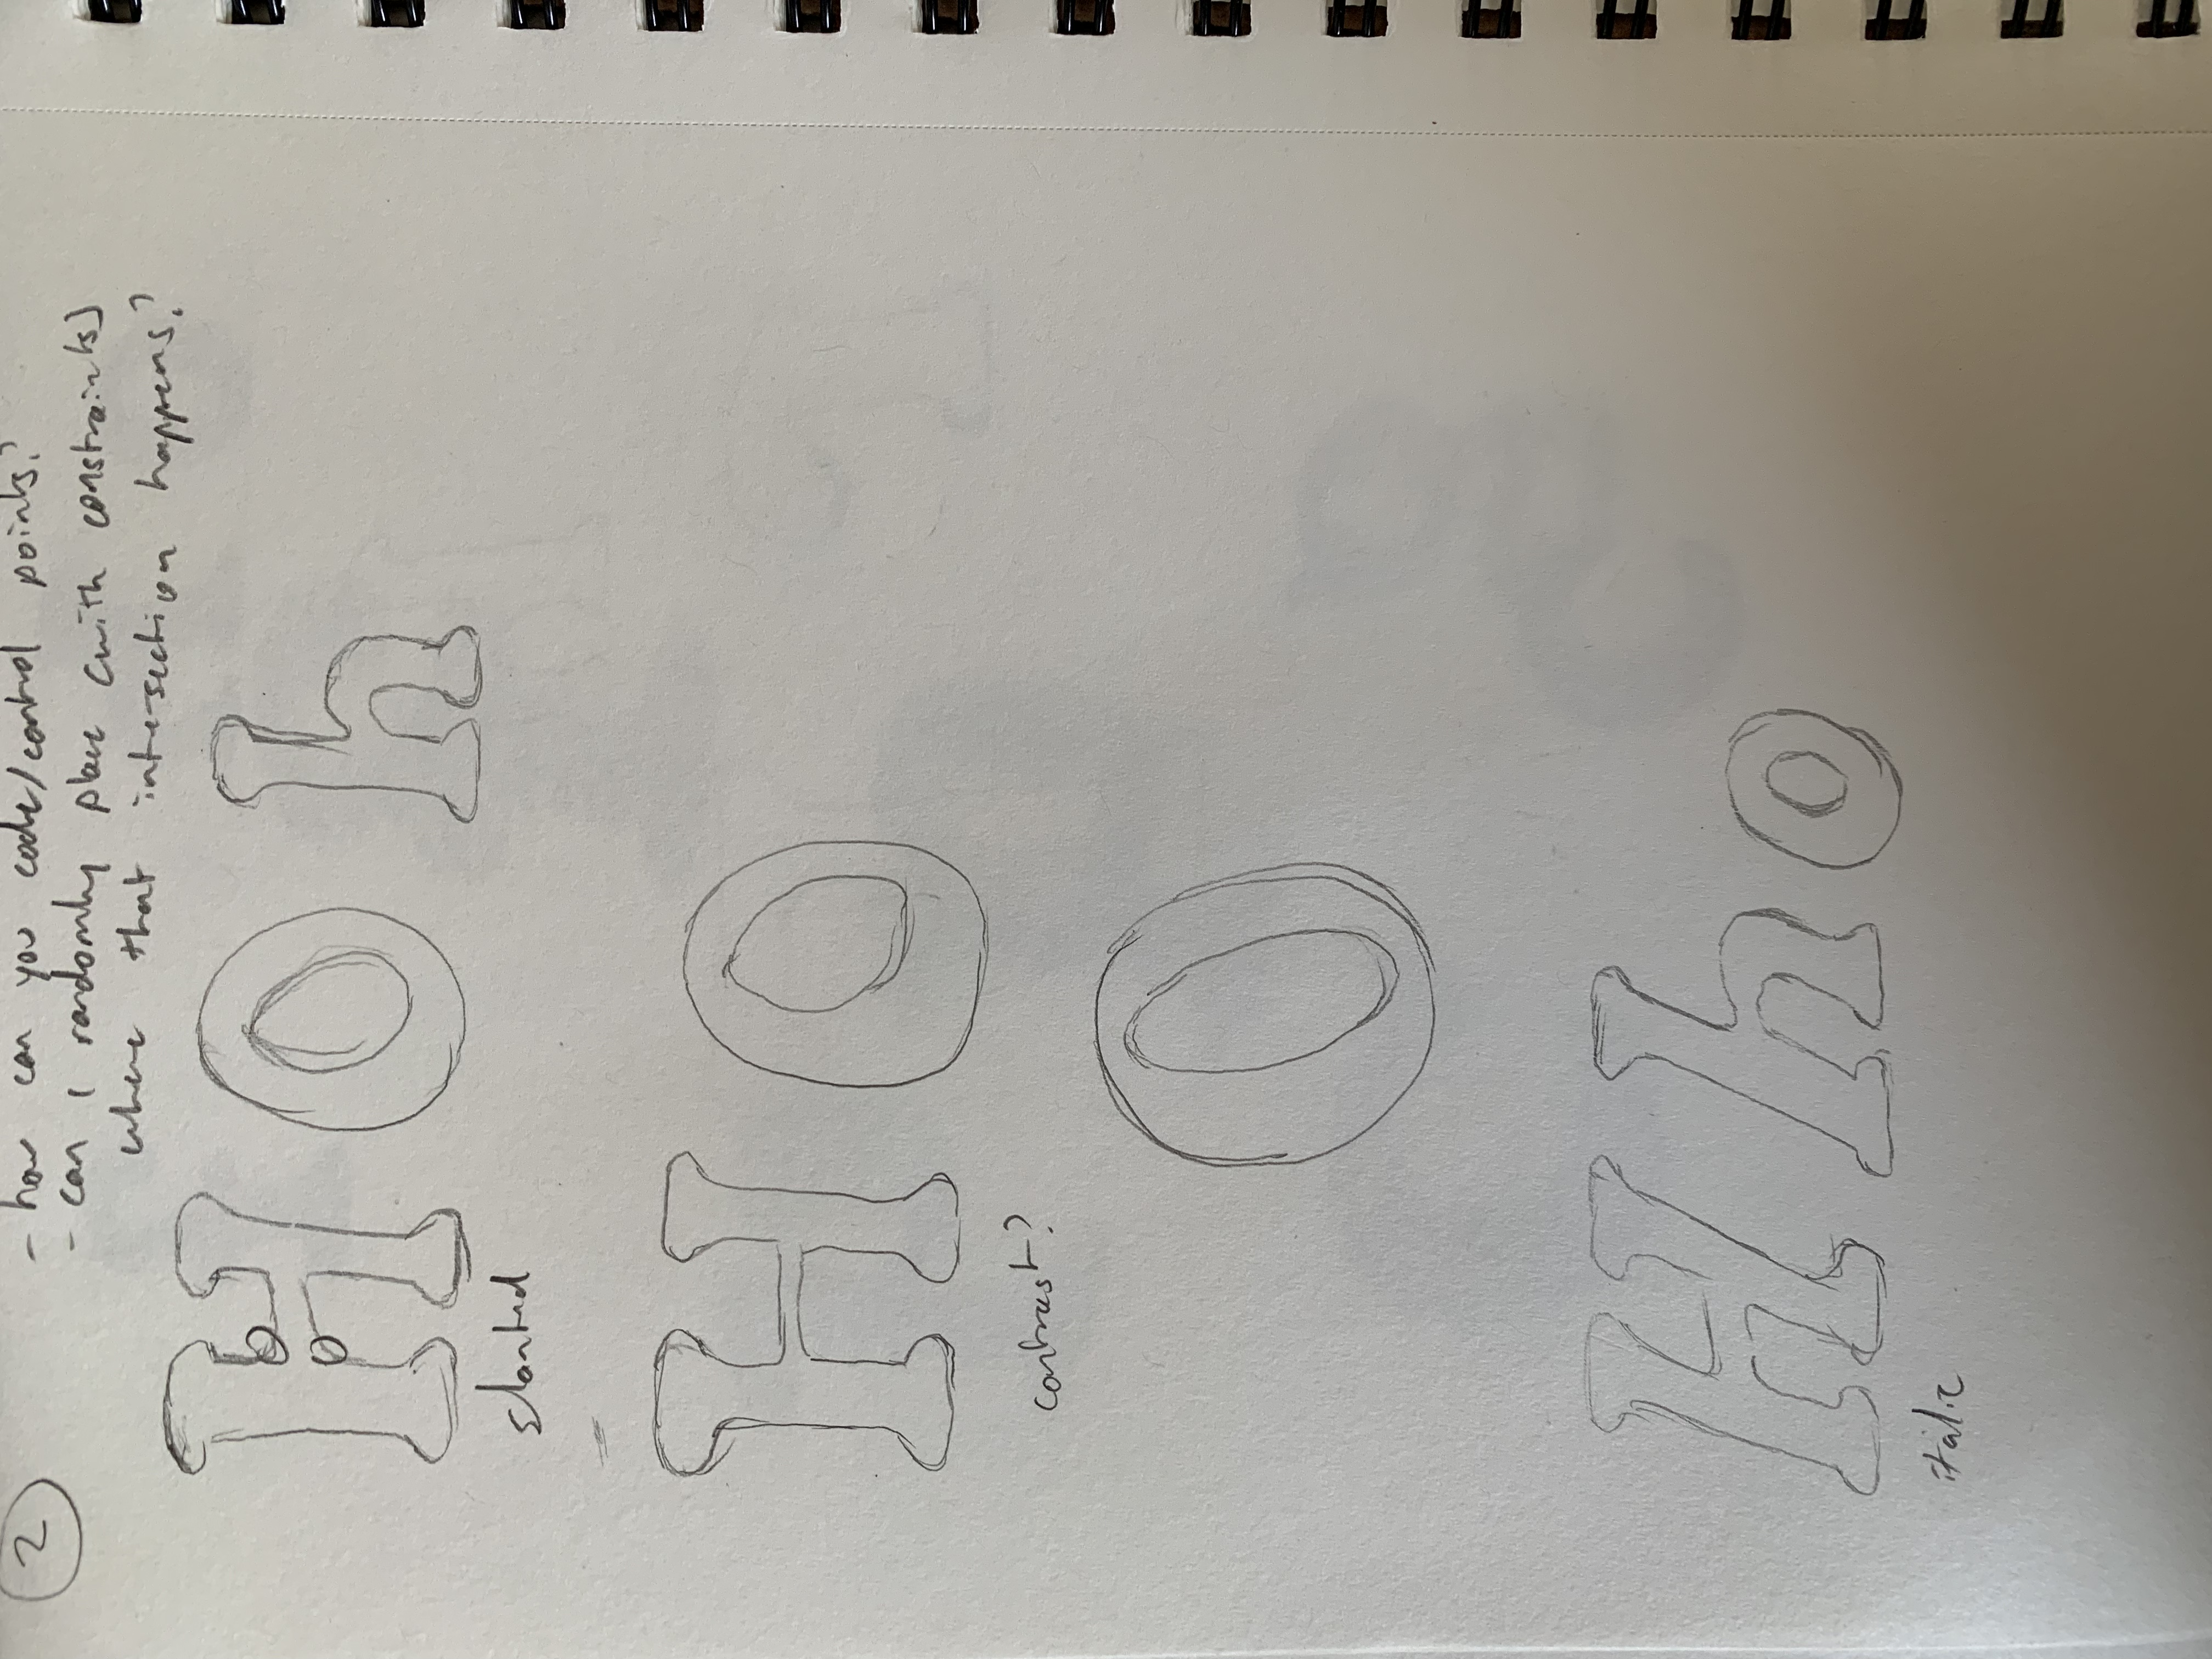 2
- how can you code/control points?
- can i randomly place (with constraints)
where that intersection happens?
H O h
slanted
H O
contrast?
O
H h o
italic